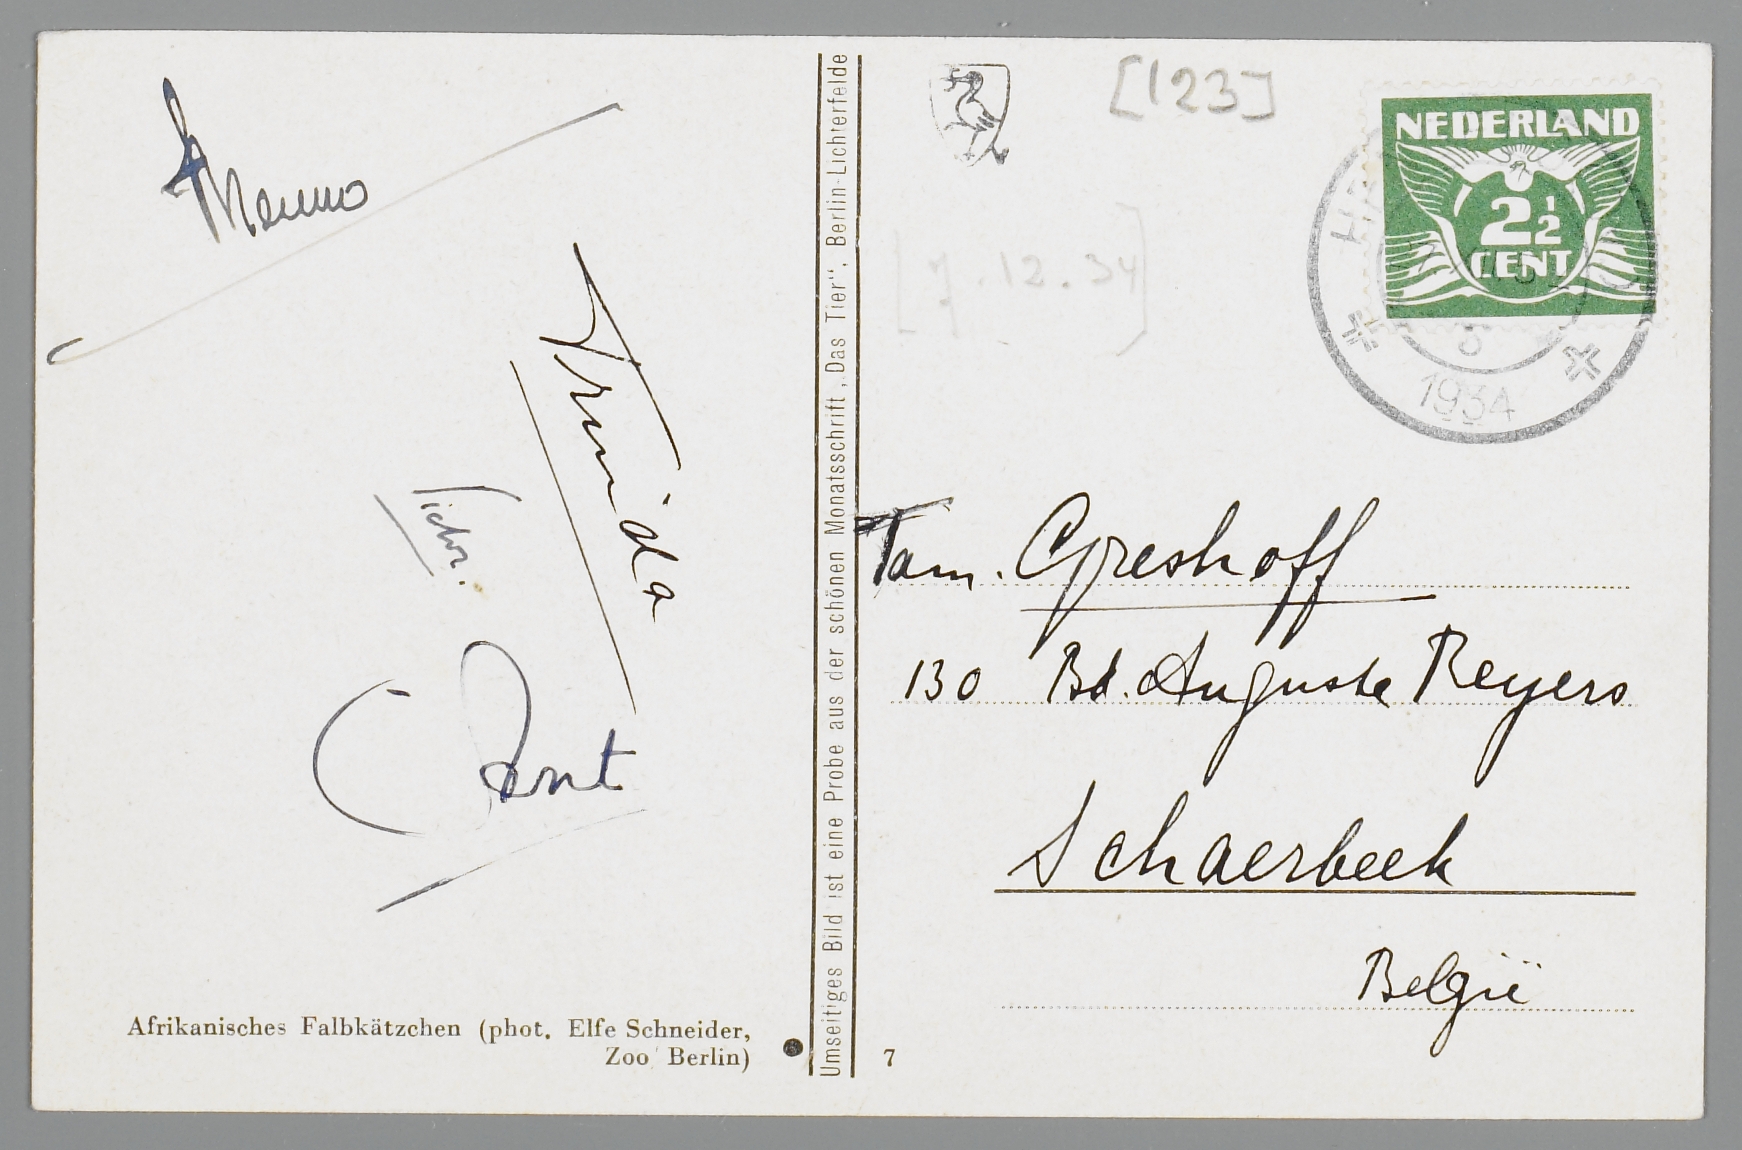 Menno
Truida
Ant
Afrikanisches Falbkätzchen (phot. Elfe Schneider,
Zoo Berlin)
Umseitiges Bild ist eine Probe aus der schönen Monatsschrift „Das Tier“, Berlin-Lichterfelde
7
[123]
[7.12.34]
NEDERLAND
2½
CENT
1934
Fam. Greshoff
130 Bd. Auguste Reyers
Schaerbeek
België